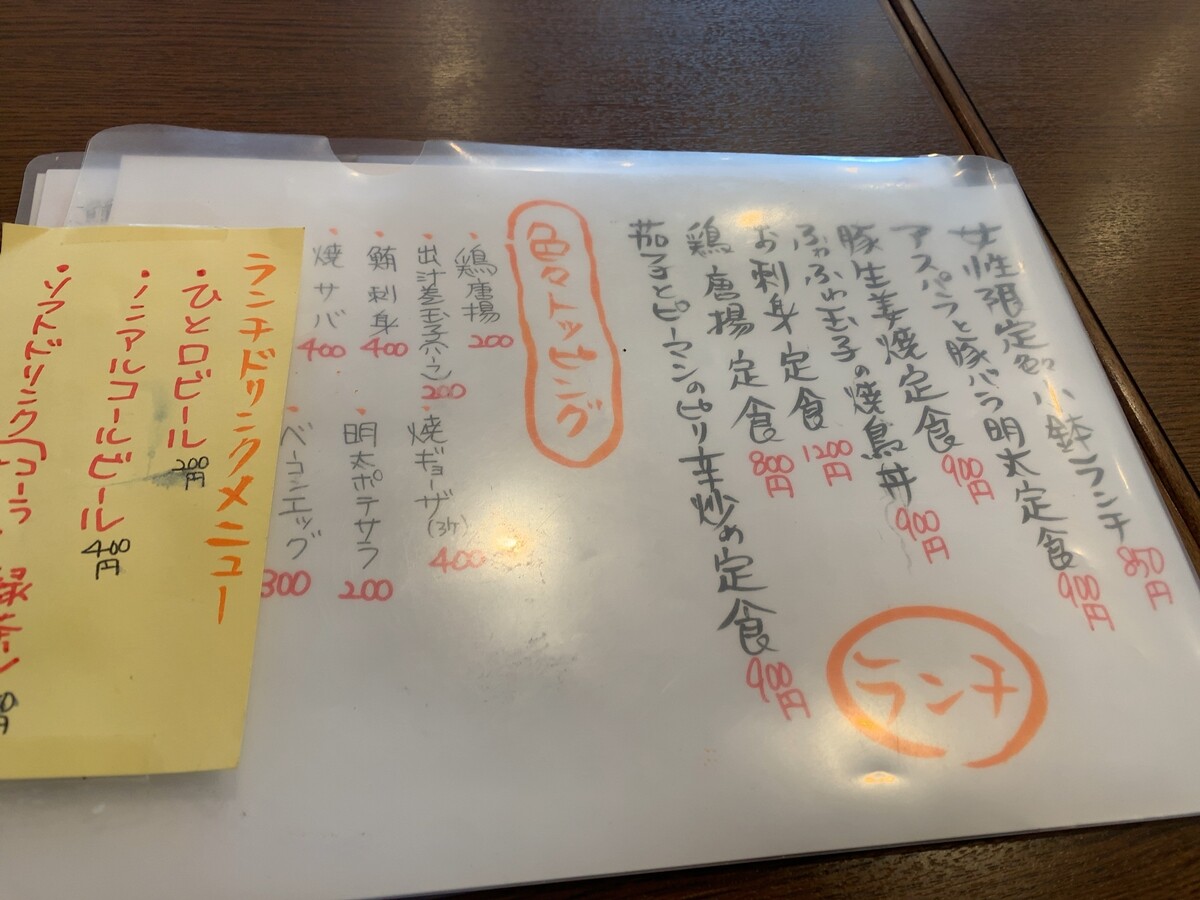 ランチ
女性限定多い小鉢ランチ 850円
アスパラと豚バラ明太定食 900円
豚生姜焼定食 900円
ふわふわ玉子の焼鳥丼 900円
お刺身定食 1200円
鶏唐揚定食 800円
茄子とピーマンのピリ辛炒め定食 900円
色々トッピング
・鶏唐揚 200
・出汁巻玉子(ハーフ) 200
・鮪刺身 400
・焼サバ 400
・焼ギョーザ(3ケ) 400
・明太ポテサラ 200
・ベーコンエッグ 300
ランチドリンクメニュー
・ひと口ビール 200円
・ノンアルコールビール 400円
・ソフトドリンク(コーラ